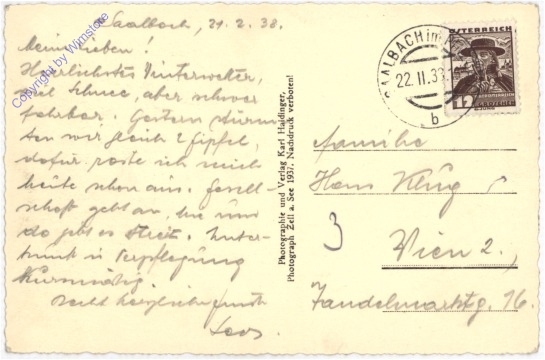 Saalbach, 21.2.38.
Meine Lieben!
Herrlichstes Winterwetter,
viel Schnee, aber schwer
fahrbar. Gestern stürm-
ten wir gleich 2 Gipfel,
dafür raste ich mich
heute schon aus. Gesell-
schaft geht an, hie und
da gibt es Streit. Unter-
kunft u. Verpflegung
kurmäßig.
recht herzlich grüsst
Copyright by Wimstore
Photographie und Verlag Karl Haidinger,
Photograph Zell a. See 1937. Nachdruck verboten!
SAALBACH im
22.II.38
b
ÖSTERREICH
12
Familie
Hans Klug
3
Wien 2.,
16.